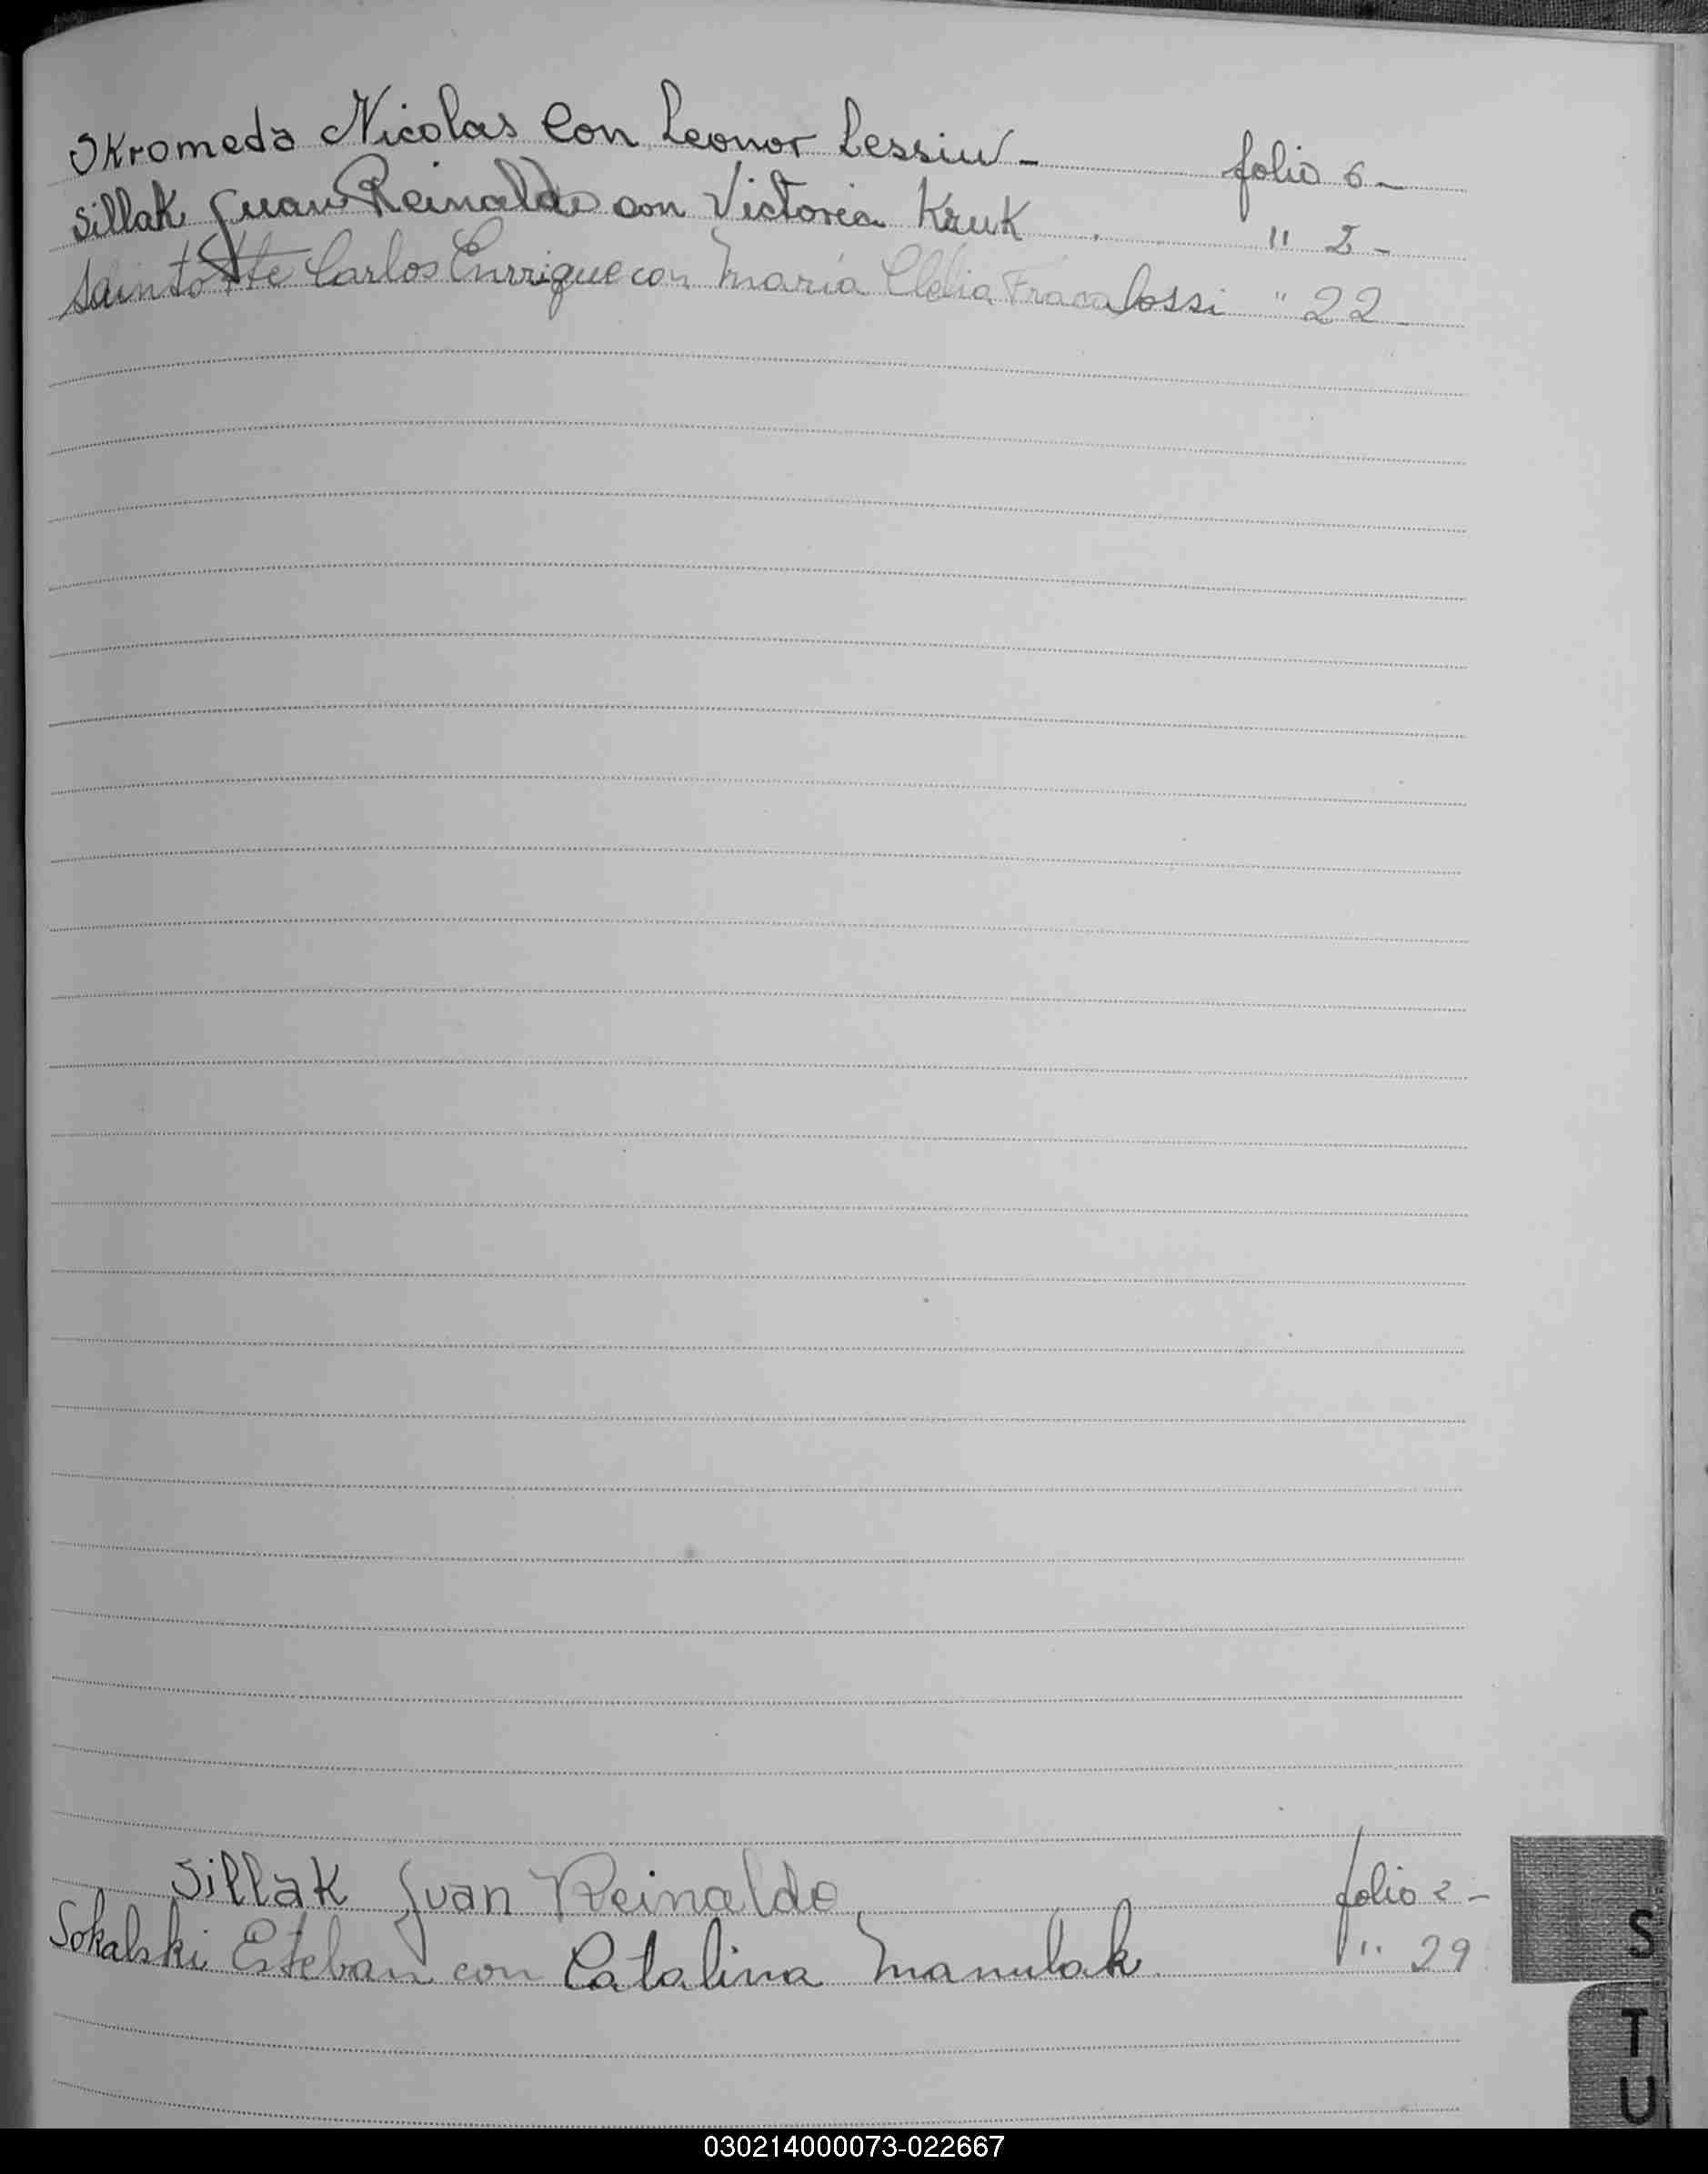 Skromeda Nicolas Con Leonor Lessiw - folio 6 -
Sillak Juan Reinaldo con Victoria Kruk " 2 -
Sainto Carlos Enrrique con Maria Clelia Fracalossi " 22 -
Sillak Juan Reinaldo folio 2 -
Sokalski Esteban con Catalina Manulak " 29
S
T
U
030214000073-022667